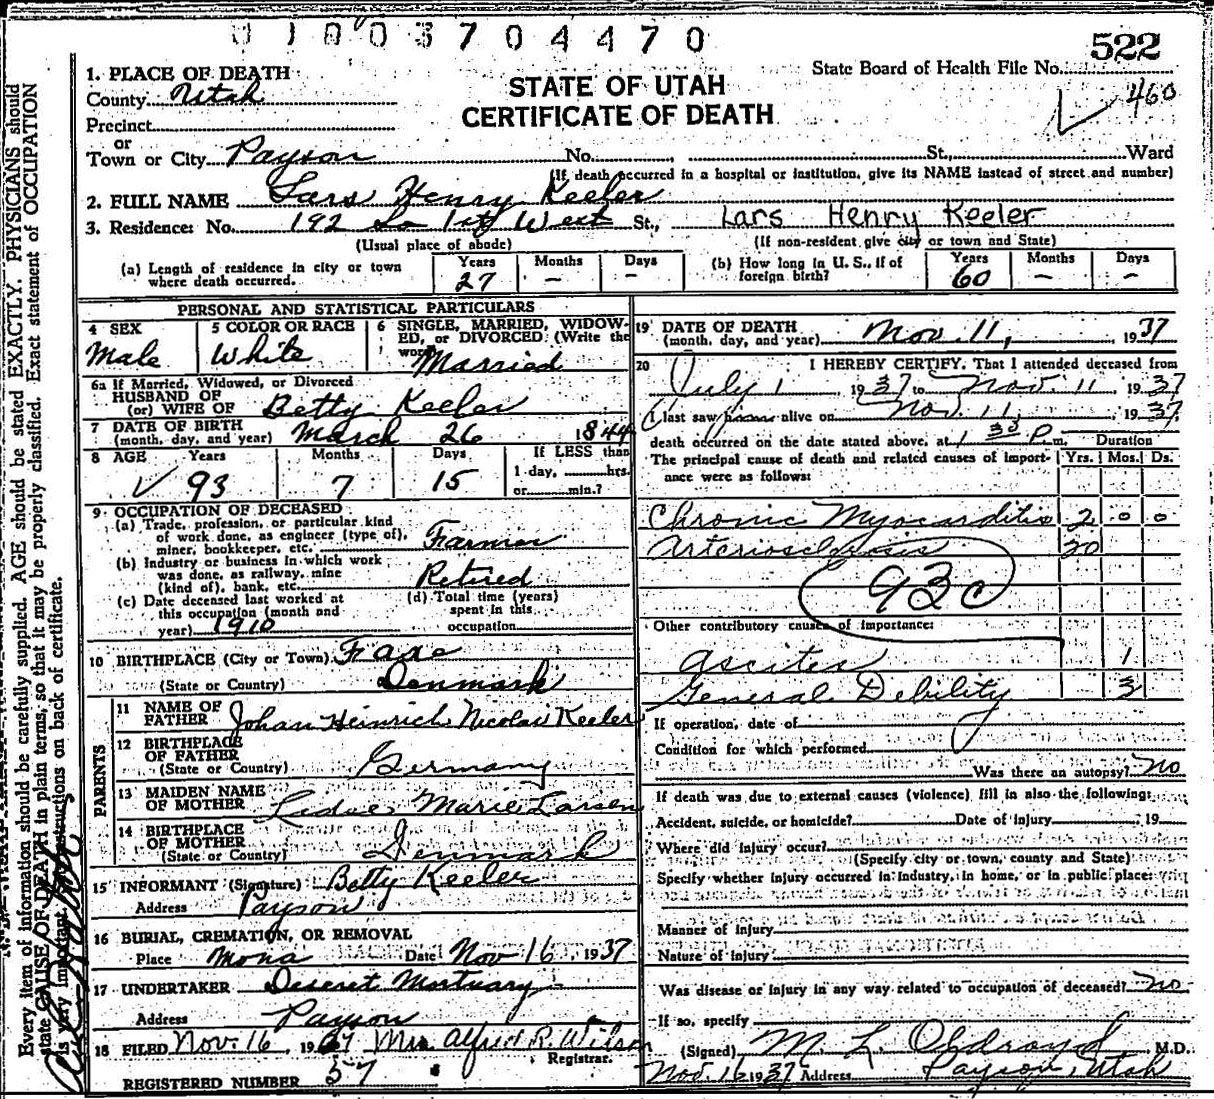 0 1 0 0 3 7 0 4 4 7 0
522
State Board of Health File No.
460
STATE OF UTAH
CERTIFICATE OF DEATH
1. PLACE OF DEATH
County Utah
Precinct
or
Town or City Payson No. , St., Ward
(If death occurred in a hospital or institution, give its NAME instead of street and number)
2. FULL NAME Lars Henry Keeler
3. Residence: No. 192 So 1st West St., Lars Henry Keeler
(Usual place of abode) (If non-resident give city or town and State)
(a) Length of residence in city or town where death occurred. Years 27 Months — Days —
(b) How long in U. S., if of foreign birth? Years 60 Months — Days —
PERSONAL AND STATISTICAL PARTICULARS
4 SEX Male
5 COLOR OR RACE White
6 SINGLE, MARRIED, WIDOWED, or DIVORCED (Write the word) Married
6a If Married, Widowed, or Divorced
HUSBAND OF
(or) WIFE OF Betty Keeler
7 DATE OF BIRTH
(month, day, and year) March 26 1844
8 AGE Years 93 Months 7 Days 15 If LESS than 1 day, hrs. or min.?
9 OCCUPATION OF DECEASED
(a) Trade, profession, or particular kind of work done, as engineer (type of), miner, bookkeeper, etc. Farmer
(b) Industry or business in which work was done, as railway, mine (kind of), bank, etc. Retired
(c) Date deceased last worked at this occupation (month and year) 1910
(d) Total time (years) spent in this occupation
10 BIRTHPLACE (City or Town) Faxe
(State or Country) Denmark
PARENTS
11 NAME OF FATHER Johan Heinrich Nicolai Keeler
12 BIRTHPLACE OF FATHER
(State or Country) Germany
13 MAIDEN NAME OF MOTHER Marie Larsen
14 BIRTHPLACE OF MOTHER
(State or Country) Denmark
15 INFORMANT (Signature) Betty Keeler
Address Payson
16 BURIAL, CREMATION, OR REMOVAL
Place Mona Date Nov 16, 1937
17 UNDERTAKER Deseret Mortuary
Address Payson
18 FILED Nov. 16, 1937 Mrs Alfred R. Wilson
Registrar.
REGISTERED NUMBER 57
19 DATE OF DEATH
(month, day, and year) Nov. 11, 1937
20 I HEREBY CERTIFY, That I attended deceased from
July 1 1937 to Nov. 11 1937
I last saw him alive on Nov. 11, 1937
death occurred on the date stated above, at 1 30 P. m. Duration
The principal cause of death and related causes of importance were as follows: Yrs. Mos. Ds.
Chronic Myocarditis 2 0 0
Arteriosclerosis 20
93c
Other contributory causes of importance:
Ascites 1
General Debility 3
If operation, date of
Condition for which performed
Was there an autopsy? No
If death was due to external causes (violence) fill in also the following:
Accident, suicide, or homicide? Date of injury , 19
Where did injury occur?
(Specify city or town, county and State)
Specify whether injury occurred in industry, in home, or in public place:
Manner of injury
Nature of injury
Was disease or injury in any way related to occupation of deceased? No
If so, specify
(Signed) M. L. Oldroyd M.D.
Nov. 16 1937 Address Payson, Utah
Every item of information should be carefully supplied. AGE should be stated EXACTLY. PHYSICIANS should
state CAUSE OF DEATH in plain terms, so that it may be properly classified. Exact statement of OCCUPATION
is very important. Instructions on back of certificate.